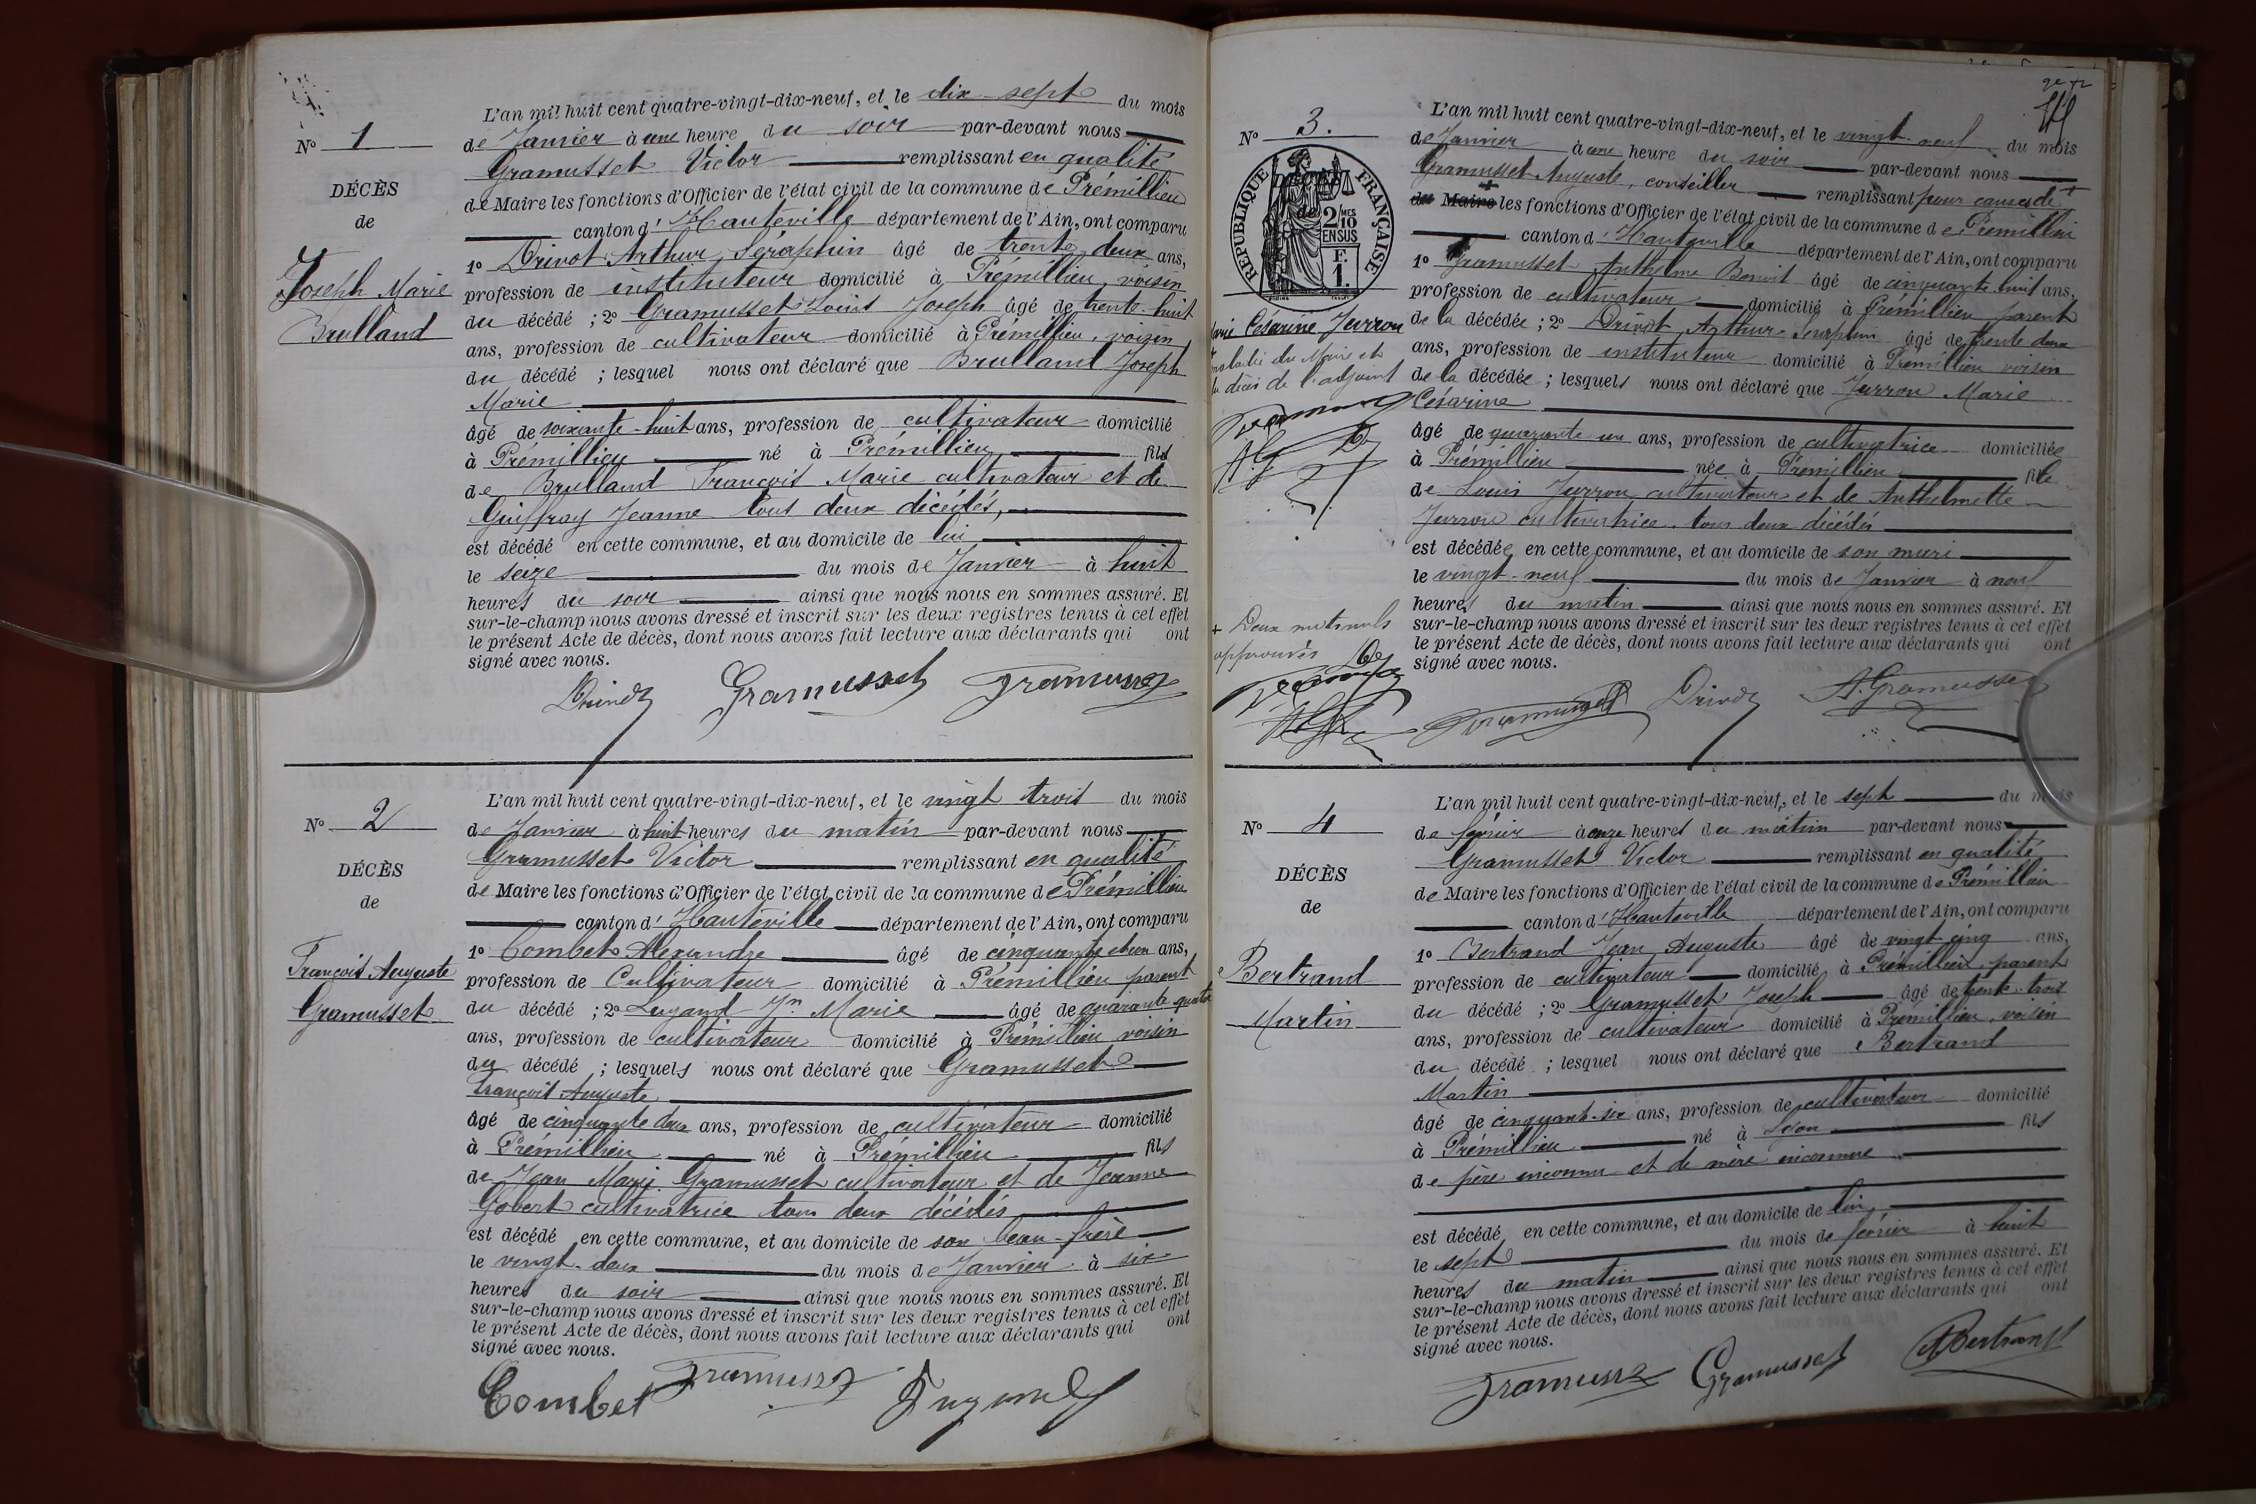 L'an mil huit cent quatre-vingt-dix-neuf, et le dix sept du mois
de Janvier à une heure du soir par-devant nous
Gramusset Victor remplissant en qualité
de Maire les fonctions d'Officier de l'état civil de la commune de Prémillieu
canton d'Hauteville département de l'Ain, ont comparu
1º Drivot Arthur Séraphin âgé de trente deux ans,
profession de instituteur domicilié à Prémillieu, voisin
du décédé ; 2º Gramusset Louis Joseph âgé de trente-huit
ans, profession de cultivateur domicilié à Prémillieu, voisin
du décédé ; lesquel nous ont déclaré que Brulland Joseph
Marie
âgé de soixante-huit ans, profession de cultivateur domicilié
à Prémillieu né à Prémillieu fils
de Brulland François Marie cultivateur et de
Guiffray Jeanne tous deux décédés,
est décédé en cette commune, et au domicile de lui
le seize du mois de Janvier à huit
heures du soir ainsi que nous nous en sommes assuré. Et
sur-le-champ nous avons dressé et inscrit sur les deux registres tenus à cet effet
le présent Acte de décès, dont nous avons fait lecture aux déclarants qui ont
signé avec nous.
Drivot Gramusset Gramusset
Nº 1
DÉCÈS
de
Joseph Marie
Brulland
L'an mil huit cent quatre-vingt-dix-neuf, et le vingt trois du mois
de Janvier à huit heures du matin par-devant nous
Gramusset Victor remplissant en qualité
de Maire les fonctions d'Officier de l'état civil de la commune de Prémillieu
canton d'Hauteville département de l'Ain, ont comparu
1º Combet Alexandre âgé de cinquante et un ans,
profession de Cultivateur domicilié à Prémillieu parent
du décédé ; 2º Lugand Jn Marie âgé de quarante quatre
ans, profession de cultivateur domicilié à Prémillieu voisin
du décédé ; lesquels nous ont déclaré que Gramusset
François Auguste
âgé de cinquante deux ans, profession de cultivateur domicilié
à Prémillieu né à Prémillieu fils
de Jean Marie Gramusset cultivateur et de Jeanne
Gobert cultivatrice tous deux décédés
est décédé en cette commune, et au domicile de son beau-frère
le vingt-deux du mois de Janvier à six
heures du soir ainsi que nous nous en sommes assuré. Et
sur-le-champ nous avons dressé et inscrit sur les deux registres tenus à cet effet
le présent Acte de décès, dont nous avons fait lecture aux déclarants qui ont
signé avec nous.
Combet Gramusset Lugand
Nº 2
DÉCÈS
de
François Auguste
Gramusset
L'an mil huit cent quatre-vingt-dix-neuf, et le vingt neuf du mois
de Janvier à une heure du soir par-devant nous
Gramusset Auguste, conseiller remplissant pour cause de +
du Maire les fonctions d'Officier de l'état civil de la commune de Prémillieu
canton d'Hauteville département de l'Ain, ont comparu
1º Gramusset Anthelme Benoit âgé de cinquante huit ans,
profession de cultivateur domicilié à Prémillieu parent
de la décédée ; 2º Drivot Arthur Séraphin âgé de trente deux
ans, profession de instituteur domicilié à Prémillieu voisin
de la décédée ; lesquels nous ont déclaré que Jurron Marie
Césarine
âgé de quarante un ans, profession de cultivatrice domiciliée
à Prémillieu née à Prémillieu fille
de Louis Jurron cultivateur et de Anthelmette
Jurron cultivatrice tous deux décédés
est décédée en cette commune, et au domicile de son mari
le vingt-neuf du mois de Janvier à neuf
heures du matin ainsi que nous nous en sommes assuré. Et
sur-le-champ nous avons dressé et inscrit sur les deux registres tenus à cet effet
le présent Acte de décès, dont nous avons fait lecture aux déclarants qui ont
signé avec nous.
Gramusset Drivot A. Gramusset
Nº 3.
RÉPUBLIQUE FRANÇAISE
2/10 MES
EN SUS
F.
1.
Marie Césarine Jurron
maladie du Maire et
du décès de l'adjoint
+ Deux mots nuls
approuvés
L'an mil huit cent quatre-vingt-dix-neuf, et le sept du mois
de février à onze heures du matin par-devant nous
Gramusset Victor remplissant en qualité
de Maire les fonctions d'Officier de l'état civil de la commune de Prémillieu
canton d'Hauteville département de l'Ain, ont comparu
1º Bertrand Jean Auguste âgé de vingt cinq ans,
profession de cultivateur domicilié à Prémillieu parent
du décédé ; 2º Gramusset Joseph âgé de trente-trois
ans, profession de cultivateur domicilié à Prémillieu, voisin
du décédé ; lesquel nous ont déclaré que Bertrand
Martin
âgé de cinquante-six ans, profession de cultivateur domicilié
à Prémillieu né à Lyon fils
de père inconnu et de mère inconnue
est décédé en cette commune, et au domicile de lui
le sept du mois de février à huit
heures du matin ainsi que nous nous en sommes assuré. Et
sur-le-champ nous avons dressé et inscrit sur les deux registres tenus à cet effet
le présent Acte de décès, dont nous avons fait lecture aux déclarants qui ont
signé avec nous.
Gramusset Gramusset A Bertrand
Nº 4
DÉCÈS
de
Bertrand
Martin